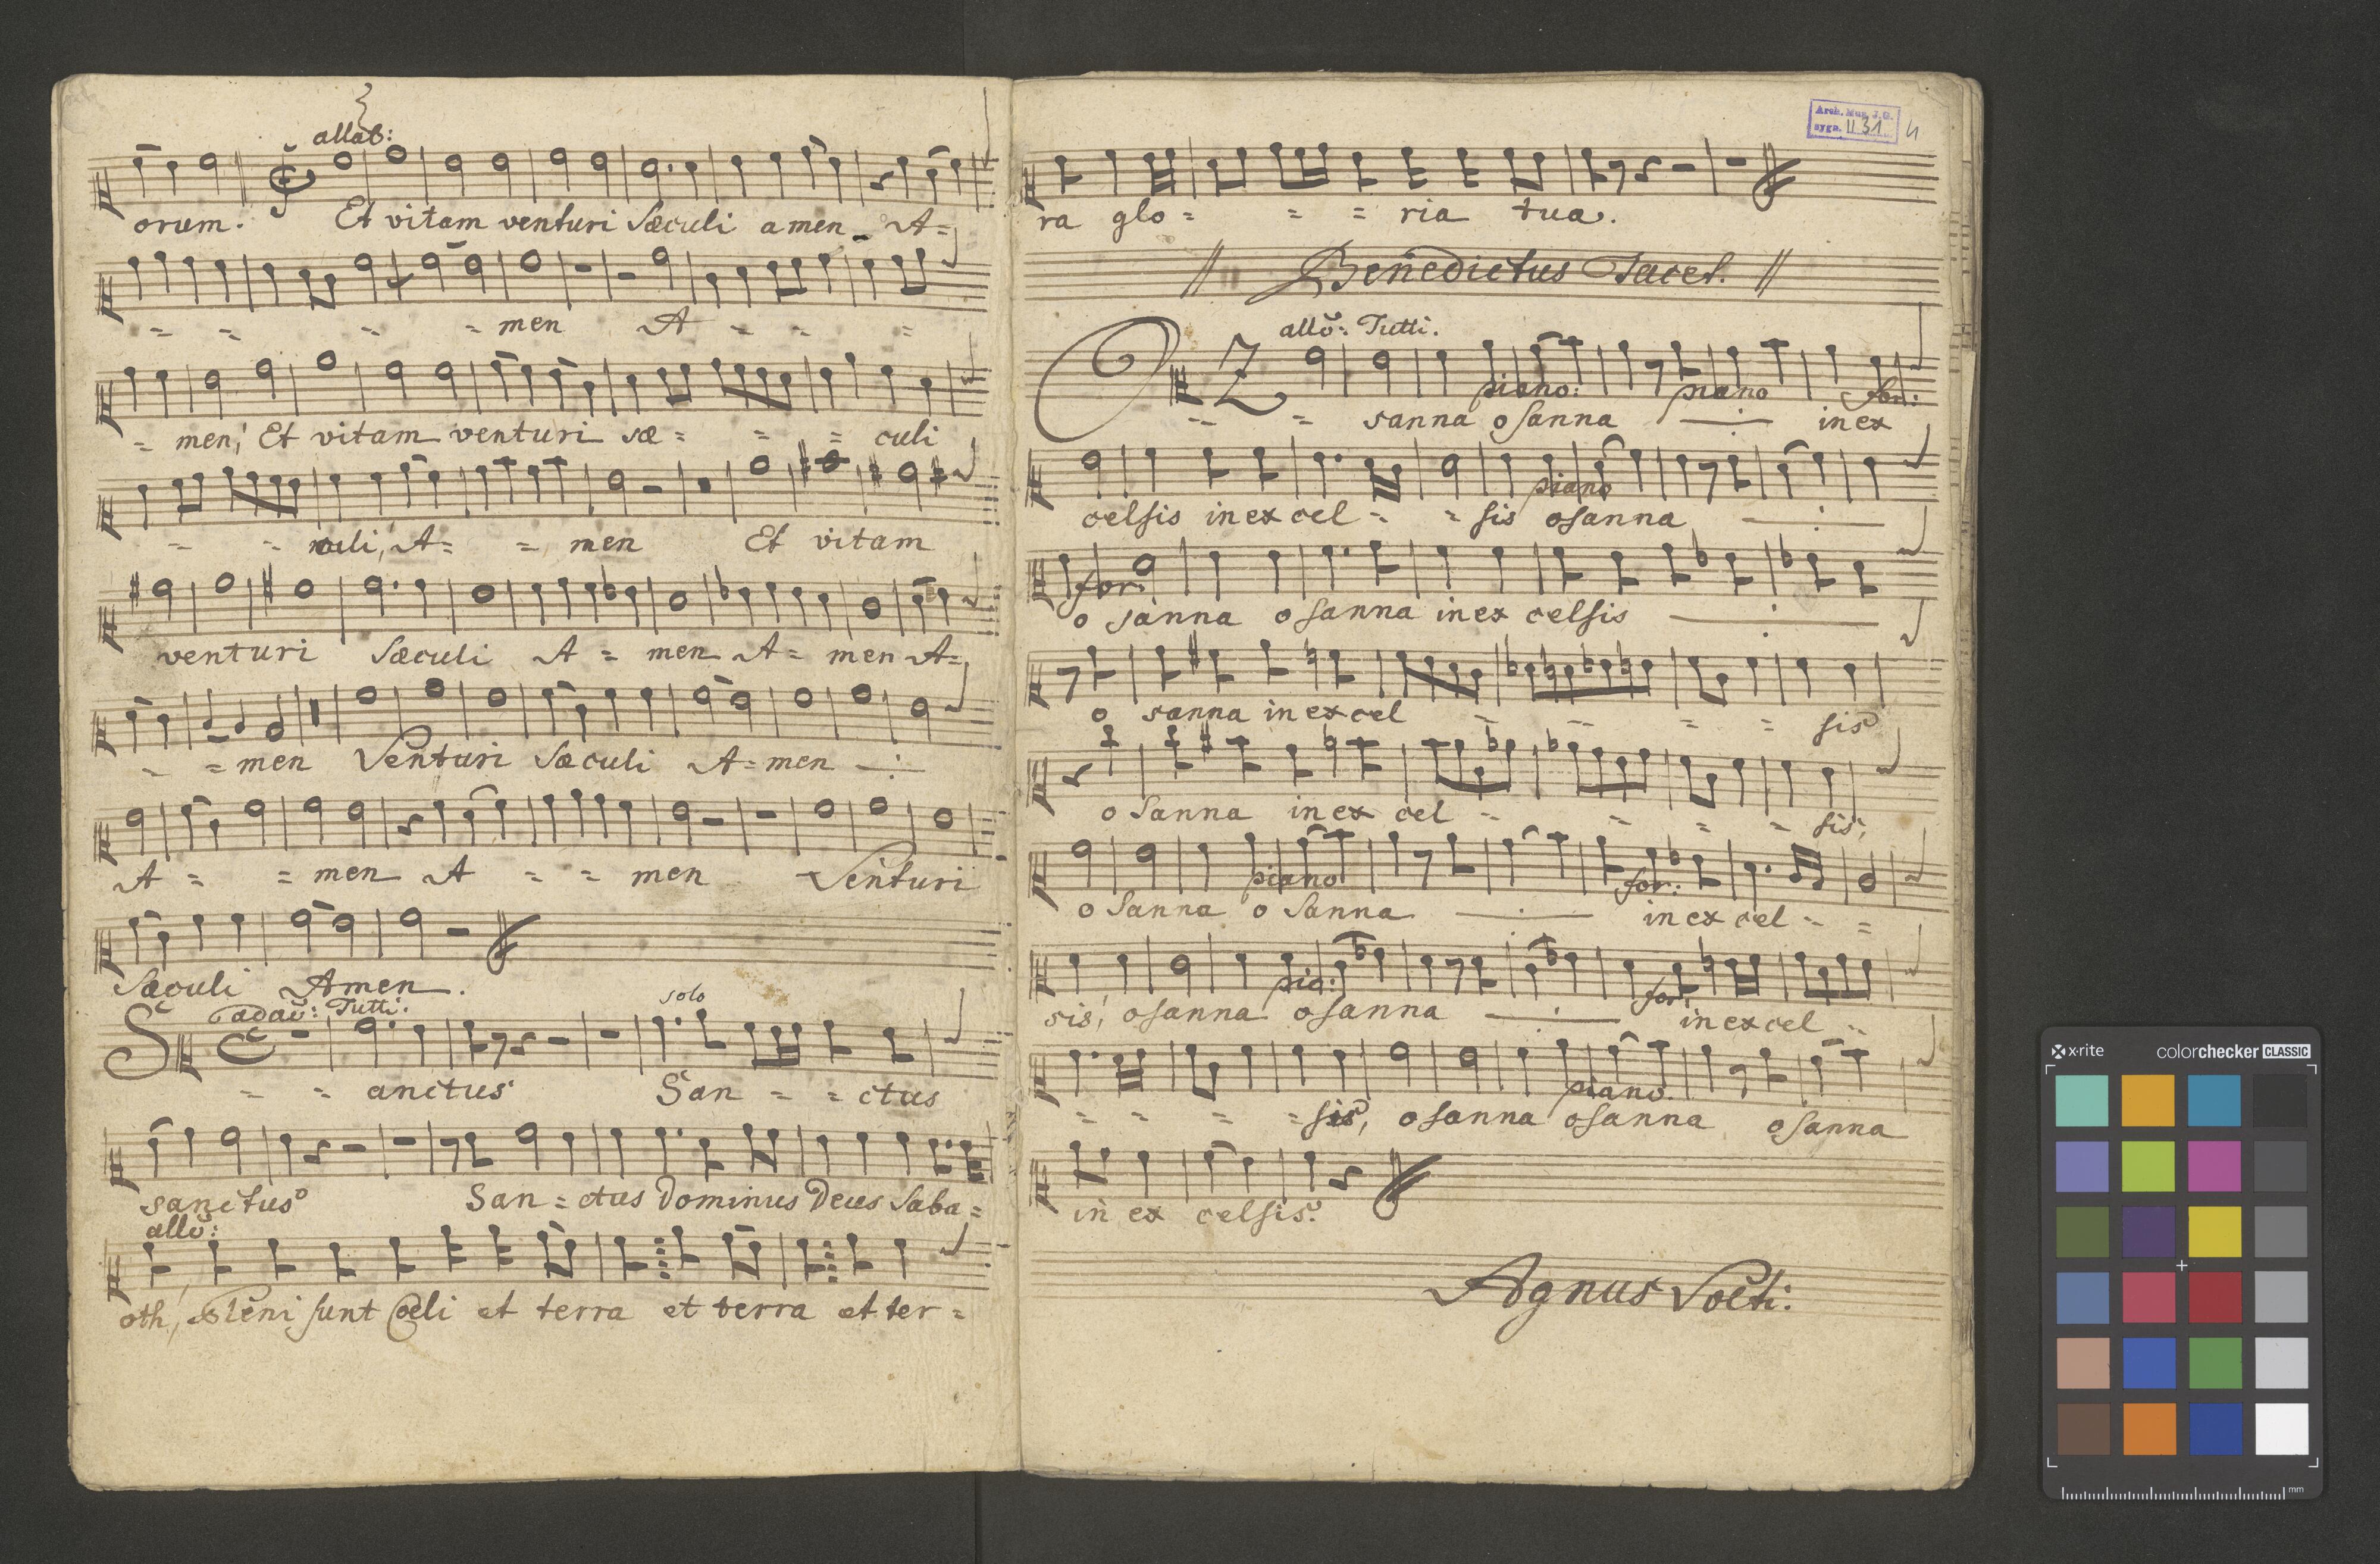 allab:
orum. Et vitam venturi Sæculi amen A=
= = = = men A = = =
= men, Et vitam venturi sæ= = = culi
= = culi, A= = men Et vitam
venturi Sæculi A = men A= men A=
= = men Venturi Sæculi A=men
A = = men A = = men Venturi
Sæculi Amen.
adaő: Tutti. solo
S = = anctus San = = ctus
sanctus San = ctus Dominus Deus Saba=
allő:
oth, Pleni sunt Cœli et terra et terra et ter=
Arch. Muz. J.G.
sygn. II 31 4
ra glo= = = ria tua.
// Benedictus Tacet. //
allő: Tutti.
piano: piano for:
O = = sanna osanna in ex
piano
celsis in ex cel= = sis osanna
for
o sanna osanna in ex celsis
o sanna in ex cel = = = = sis
o Sanna in ex cel = = = = sis,
piano for:
o Sanna o Sanna in ex cel = =
pia: for:
sis, osanna osanna in ex cel =
piano
= = = = sis, osanna osanna osanna
in ex celsis.
Agnus Volti: